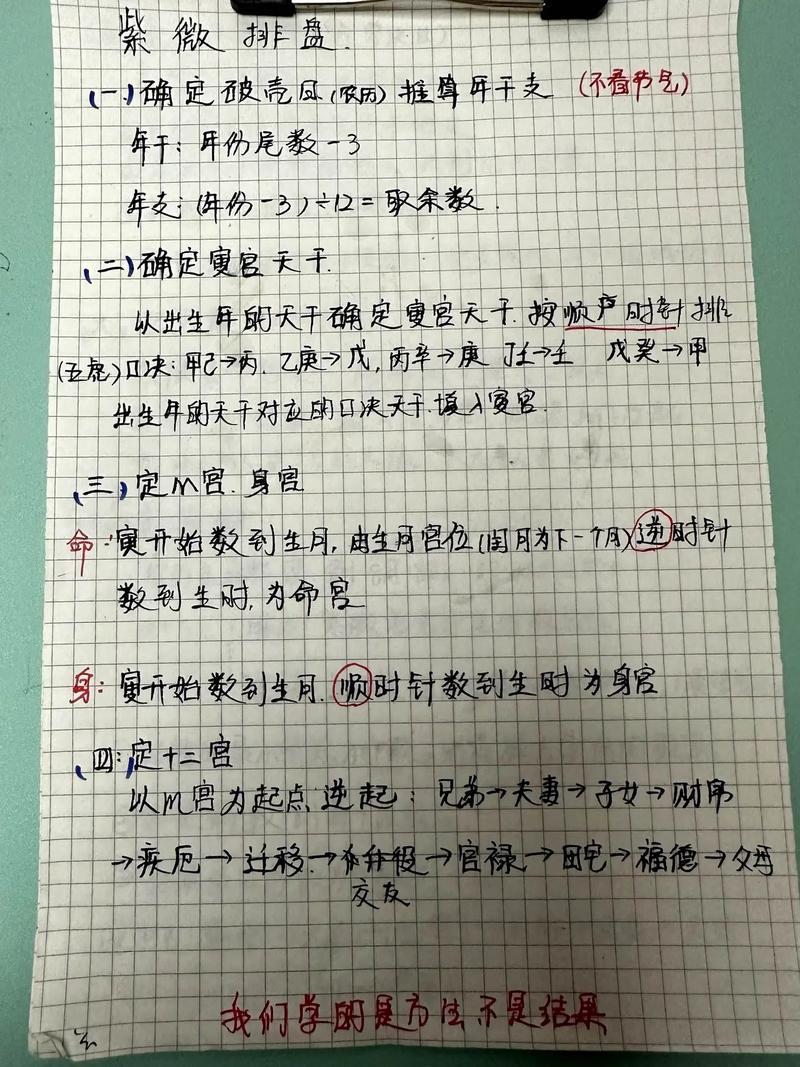 紫微排盘.
(一)确定破壳日(农历)推算年干支 (不看节气)
年干: 年份尾数-3
年支: (年份-3)÷12=取余数.
(二)确定寅宫天干.
以出生年的天干确定寅宫天干.按顺时针排
(五虎)口决: 甲己→丙. 乙庚→戊, 丙辛→庚 丁壬→壬 戊癸→甲
出生年的天干对应的口决天干.填入寅宫.
(三)定M宫.身宫
命: 寅开始数到生月, 由生月宫位(闰月为下一个月)逆时针
数到生时, 为命宫
身: 寅开始数到生月.顺时针数到生时为身宫
(四:)定十二宫
以M宫为起点逆起: 兄弟→夫妻→子女→财帛
→疾厄→迁移→→官禄→田宅→福德→父母
交友
我们学的是方法不是结果